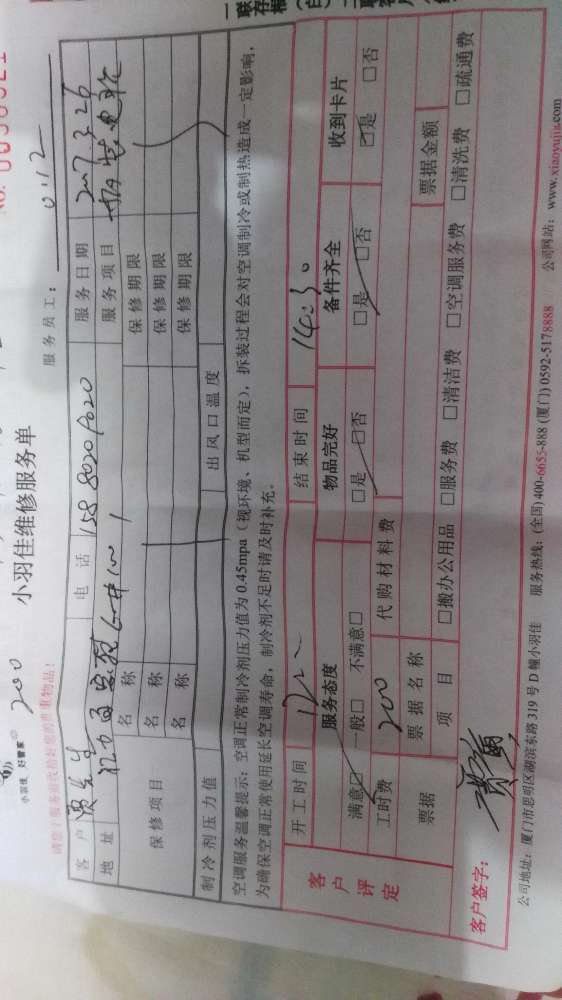 一联存根（白）二联客户
小羽佳 好管家
200 小羽佳维修服务单
服务员工： 0112
请您在服务前收拾好您的贵重物品！
客户 先生 电话 158 8020 9020 服务日期 2017.3.26
地址 服务项目
保修项目 名称 保修期限
名称 保修期限
名称 保修期限
制冷剂压力值 出风口温度
空调服务温馨提示：空调正常制冷剂压力值为 0.45mpa（视环境、机型而定），拆装过程会对空调制冷或制热造成一定影响，
为确保空调正常使用延长空调寿命，制冷剂不足时请及时补充。
客户评定 开工时间 结束时间 14:30
服务态度 物品完好 备件齐全 收到卡片
满意□ 一般□ 不满意□ □是 □否 □是 □否 □是 □否
工时费 200 代购材料费
票据 票据名称 票据金额
项目 □搬办公用品 □服务费 □清洁费 □空调服务费 □清洗费 □疏通费
客户签字：
公司地址：厦门市思明区湖滨东路 319 号 D 幢小羽佳 服务热线：(全国)400-6655-888 (厦门) 0592-5178888 公司网站：www.xiaoyujia.com